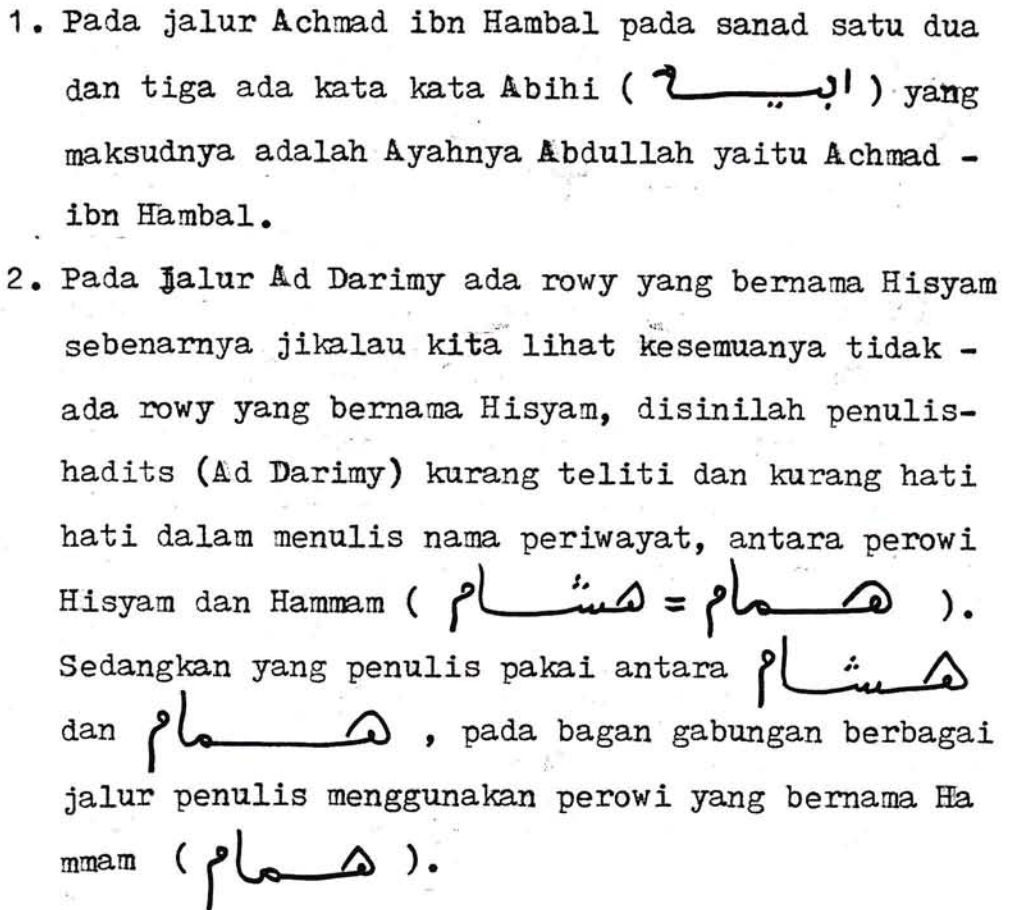 1. Pada jalur Achmad ibn Hambal pada sanad satu dua
dan tiga ada kata kata Abihi ( ابيـــــه ) yang
maksudnya adalah Ayahnya Abdullah yaitu Achmad -
ibn Hambal.
2. Pada Jalur Ad Darimy ada rowy yang bernama Hisyam
sebenarnya jikalau kita lihat kesemuanya tidak -
ada rowy yang bernama Hisyam, disinilah penulis-
hadits (Ad Darimy) kurang teliti dan kurang hati
hati dalam menulis nama periwayat, antara perowi
Hisyam dan Hammam ( هـمام = هشـام ).
Sedangkan yang penulis pakai antara هـشـام
dan هـمام , pada bagan gabungan berbagai
jalur penulis menggunakan perowi yang bernama Ha
mmam ( هـمام ).